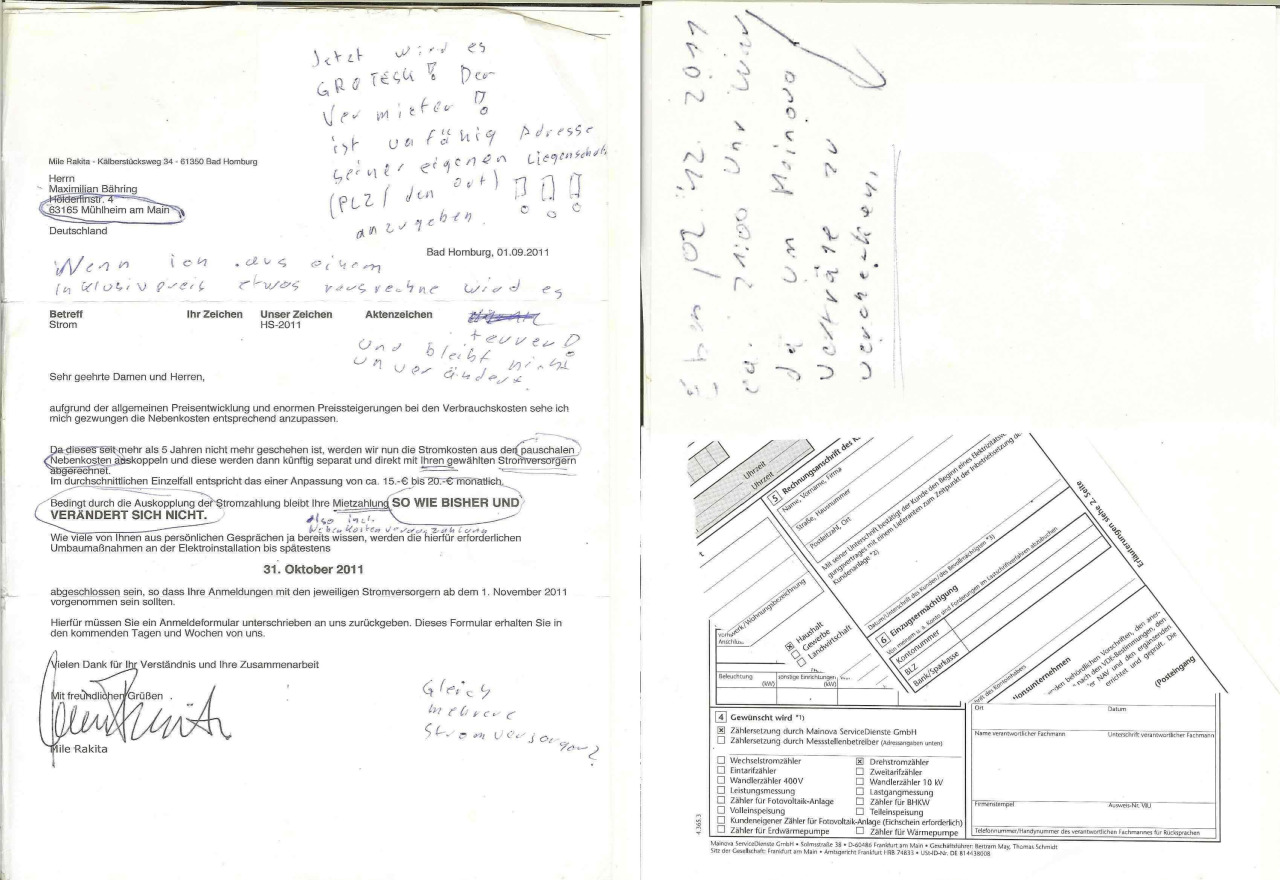 Jetzt wird es
GROTESK! Der
Vermieter!
ist unfähig Adresse
seiner eigenen Liegenschaft
(PLZ/ den Ort) !!!
anzugeben.
Mile Rakita - Kälberstücksweg 34 - 61350 Bad Homburg
Herrn
Maximilian Bähring
Hölderlinstr. 4
63165 Mühlheim am Main
Deutschland
Bad Homburg, 01.09.2011
Wenn ich aus einem
Inklusivpreis etwas rausrechne wird es
Betreff Ihr Zeichen Unser Zeichen Aktenzeichen
Strom HS-2011
teurer!
und bleibt nicht
unverändert.
Sehr geehrte Damen und Herren,
aufgrund der allgemeinen Preisentwicklung und enormen Preissteigerungen bei den Verbrauchskosten sehe ich
mich gezwungen die Nebenkosten entsprechend anzupassen.
Da dieses seit mehr als 5 Jahren nicht mehr geschehen ist, werden wir nun die Stromkosten aus den pauschalen
Nebenkosten auskoppeln und diese werden dann künftig separat und direkt mit Ihren gewählten Stromversorgern
abgerechnet.
Im durchschnittlichen Einzelfall entspricht das einer Anpassung von ca. 15.-€ bis 20.-€ monatlich.
Bedingt durch die Auskopplung der Stromzahlung bleibt Ihre Mietzahlung SO WIE BISHER UND
VERÄNDERT SICH NICHT.
also incl.
Nebenkostenvorauszahlung
Wie viele von Ihnen aus persönlichen Gesprächen ja bereits wissen, werden die hierfür erforderlichen
Umbaumaßnahmen an der Elektroinstallation bis spätestens
31. Oktober 2011
abgeschlossen sein, so dass Ihre Anmeldungen mit den jeweiligen Stromversorgern ab dem 1. November 2011
vorgenommen sein sollten.
Hierfür müssen Sie ein Anmeldeformular unterschrieben an uns zurückgeben. Dieses Formular erhalten Sie in
den kommenden Tagen und Wochen von uns.
Vielen Dank für Ihr Verständnis und Ihre Zusammenarbeit
Mit freundlichen Grüßen
Mile Rakita
Gleich
mehrere
Stromversorger?
02.12.2011
ca. 21:00 Uhr
da um Mainova
Verträge zu
verchecken.
Uhrzeit
Uhrzeit
5 Rechnungsanschrift des
Name, Vorname, Firma
Straße, Hausnummer
Postleitzahl, Ort
Mit seiner Unterschrift bestätigt der Kunde den Beginn eines
gungsvertrages mit einem Lieferanten zum Zeitpunkt der Inbetriebsetzung der
Kundenanlage *2)
Datum/Unterschrift des Kunden/des Bevollmächtigten *3)
6 Einzugermächtigung
Von meinem u. a. Konto sind Forderungen im Lastschriftverfahren abzubuchen
Kontonummer
BLZ
Bank/Sparkasse
Erläuterungen siehe 2. Seite
werk/Wohnungsbezeichnung
Anschluss
☒ Haushalt
☐ Gewerbe
☐ Landwirtschaft
Beleuchtung (kW) sonstige Einrichtungen (kW)
schrift des Kontoinhabers
tionsunternehmen
(Posteingang
4 Gewünscht wird *1)
☒ Zählersetzung durch Mainova ServiceDienste GmbH
☐ Zählersetzung durch Messstellenbetreiber (Adressangaben unten)
☐ Wechselstromzähler ☒ Drehstromzähler
☐ Eintarifzähler ☐ Zweitarifzähler
☐ Wandlerzähler 400V ☐ Wandlerzähler 10 kV
☐ Leistungsmessung ☐ Lastgangmessung
☐ Zähler für Fotovoltaik-Anlage ☐ Zähler für BHKW
☐ Volleinspeisung ☐ Teileinspeisung
☐ Kundeneigener Zähler für Fotovoltaik-Anlage (Eichschein erforderlich)
☐ Zähler für Erdwärmepumpe ☐ Zähler für Wärmepumpe
Ort Datum
Name verantwortlicher Fachmann Unterschrift verantwortlicher Fachmann
Firmenstempel Ausweis-Nr. VIU
Telefonnummer/Handynummer des verantwortlichen Fachmannes für Rücksprachen
4.365.3
Mainova ServiceDienste GmbH • Solmsstraße 38 • D-60486 Frankfurt am Main • Geschäftsführer: Bertram May, Thomas Schmidt
Sitz der Gesellschaft: Frankfurt am Main • Amtsgericht Frankfurt HRB 74833 • USt-ID-Nr. DE 814438008